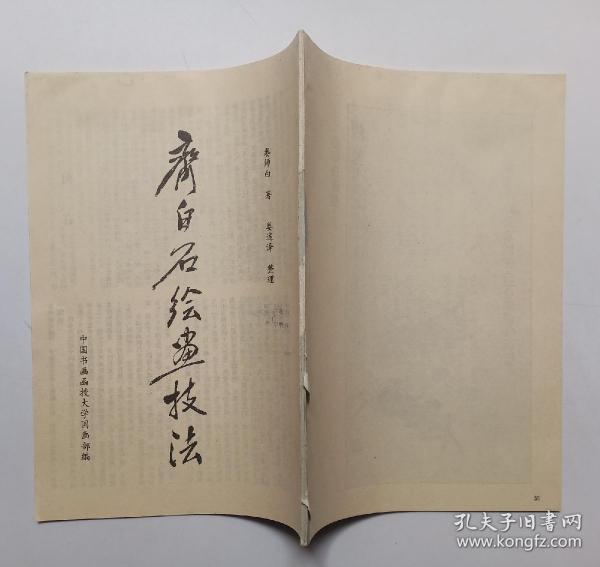 齐白石绘画技法
娄师白 著 娄述泽 整理
中国书画函授大学国画部编
孔夫子旧书网
www.kongfz.com